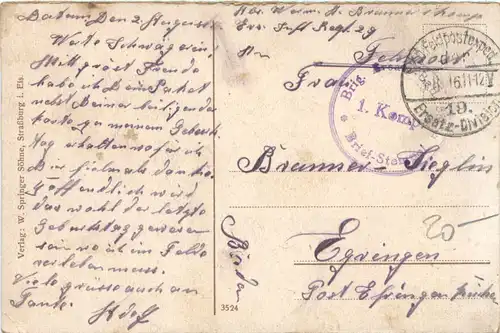 Datum, Den 2 August
Werte Schwägerin!
Mit großer Freude
habe ich Dein Paket
nebst Deiner
karte zu meinem Geburts-
tag erhalten
Dir vielmals danke.
Hoffentlich wird
das wohl der letzte
Geburtstag gewesen
sein wo ich im Felde
verleben muss.
Viele Grüsse auch an
Tante. Adolf
Verlag: W. Springer Söhne, Straßburg i. Els
3524
Abs. Werm. A. Brunner 1 Komp
Ers. Inft Regt. 29
Feldpost
An
Frau
Brunner-Sieglin
Egringen
Post Efringen
Baden
20-
Brig.
1. Komp
Brief-Stempel
Feldpostexped.
d.
16.11-12V
19.
Ersatz-Division